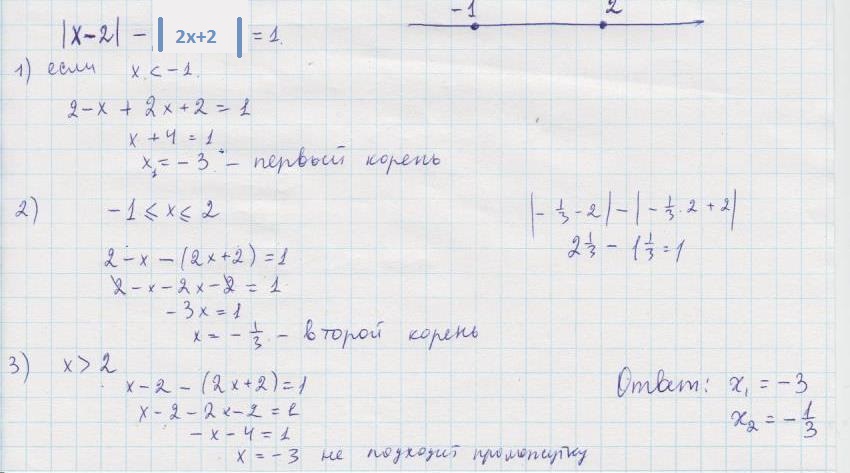 -1 2
|x-2| - | 2x+2 | = 1.
1) если x < -1.
2-x + 2x+2 = 1
x + 4 = 1
x₁ = -3 - первый корень
2) -1 ⩽ x ⩽ 2
|-1/3 - 2| - |-1/3·2 + 2|
2 1/3 - 1 1/3 = 1
2-x-(2x+2) = 1
2-x-2x-2 = 1
-3x = 1
x = -1/3 - второй корень
3) x > 2
x-2-(2x+2) = 1
x-2-2x-2 = 1
-x-4 = 1
x = -3 не подходит промежутку
Ответ: x₁ = -3
x₂ = -1/3